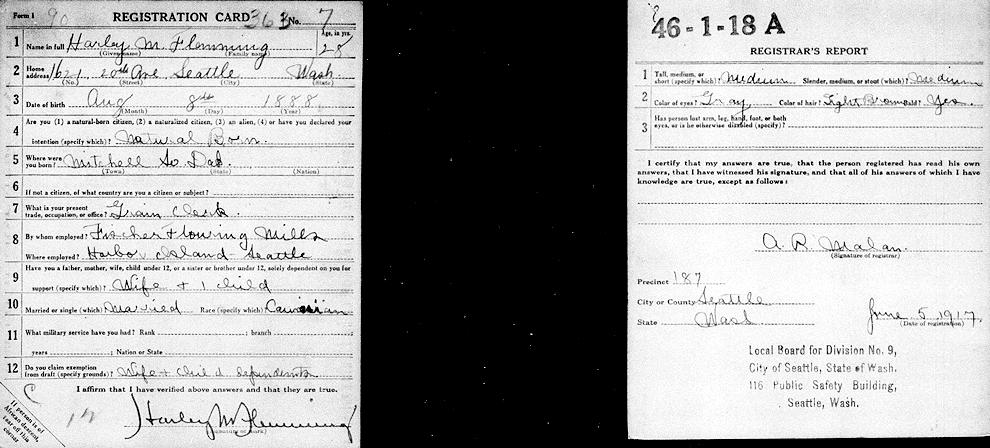 Form 1 90 REGISTRATION CARD 363 No. 7
1 Name in full Harley M. Flemming Age, in yrs. 28
(Given name) (Family name)
2 Home address 1621 20th Ave Seattle Wash.
(No.) (Street) (City) (State)
3 Date of birth Aug 8th 1888
(Month) (Day) (Year)
4 Are you (1) a natural-born citizen, (2) a naturalized citizen, (3) an alien, (4) or have you declared your
intention (specify which)? Natural Born.
5 Where were you born? Mitchell So Dak.
(Town) (State) (Nation)
6 If not a citizen, of what country are you a citizen or subject?
7 What is your present trade, occupation, or office? Grain Clerk.
8 By whom employed? Fischer Flouring Mills
Where employed? Harbor Island Seattle
9 Have you a father, mother, wife, child under 12, or a sister or brother under 12, solely dependent on you for
support (specify which)? Wife + 1 child
10 Married or single (which) Married Race (specify which)
11 What military service have you had? Rank ; branch
years ; Nation or State
12 Do you claim exemption from draft (specify grounds)? Wife + child dependents
I affirm that I have verified above answers and that they are true.
Harley M Flemming
(Signature or mark)
If person is of
African descent,
tear off this
corner
46-1-18 A
REGISTRAR'S REPORT
1 Tall, medium, or short (specify which)? Medium Slender, medium, or stout (which)? Medium
2 Color of eyes? Gray Color of hair? Light Brown Bald? Yes.
3 Has person lost arm, leg, hand, foot, or both
eyes, or is he otherwise disabled (specify)?
I certify that my answers are true, that the person registered has read his own
answers, that I have witnessed his signature, and that all of his answers of which I have
knowledge are true, except as follows:
A. R. Malan.
(Signature of registrar)
Precinct 187
City or County Seattle
State Wash. June 5, 1917.
(Date of registration)
Local Board for Division No. 9,
City of Seattle, State of Wash.
116 Public Safety Building,
Seattle, Wash.